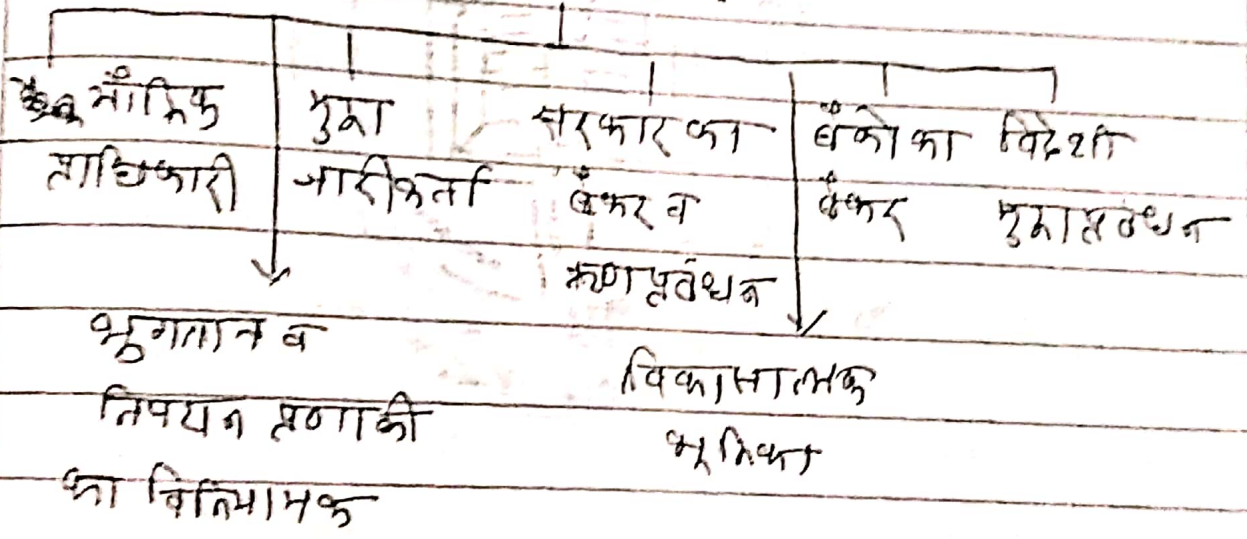 मौद्रिक
प्राधिकारी
मुद्रा
जारीकर्ता
सरकार का
बैंकर व
ऋण प्रबंधन
बैंको का
बैंकर
विदेशी
मुद्रा प्रबंधन
भुगतान व
निपटान प्रणाली
का विनियामक
विकासात्मक
भूमिका